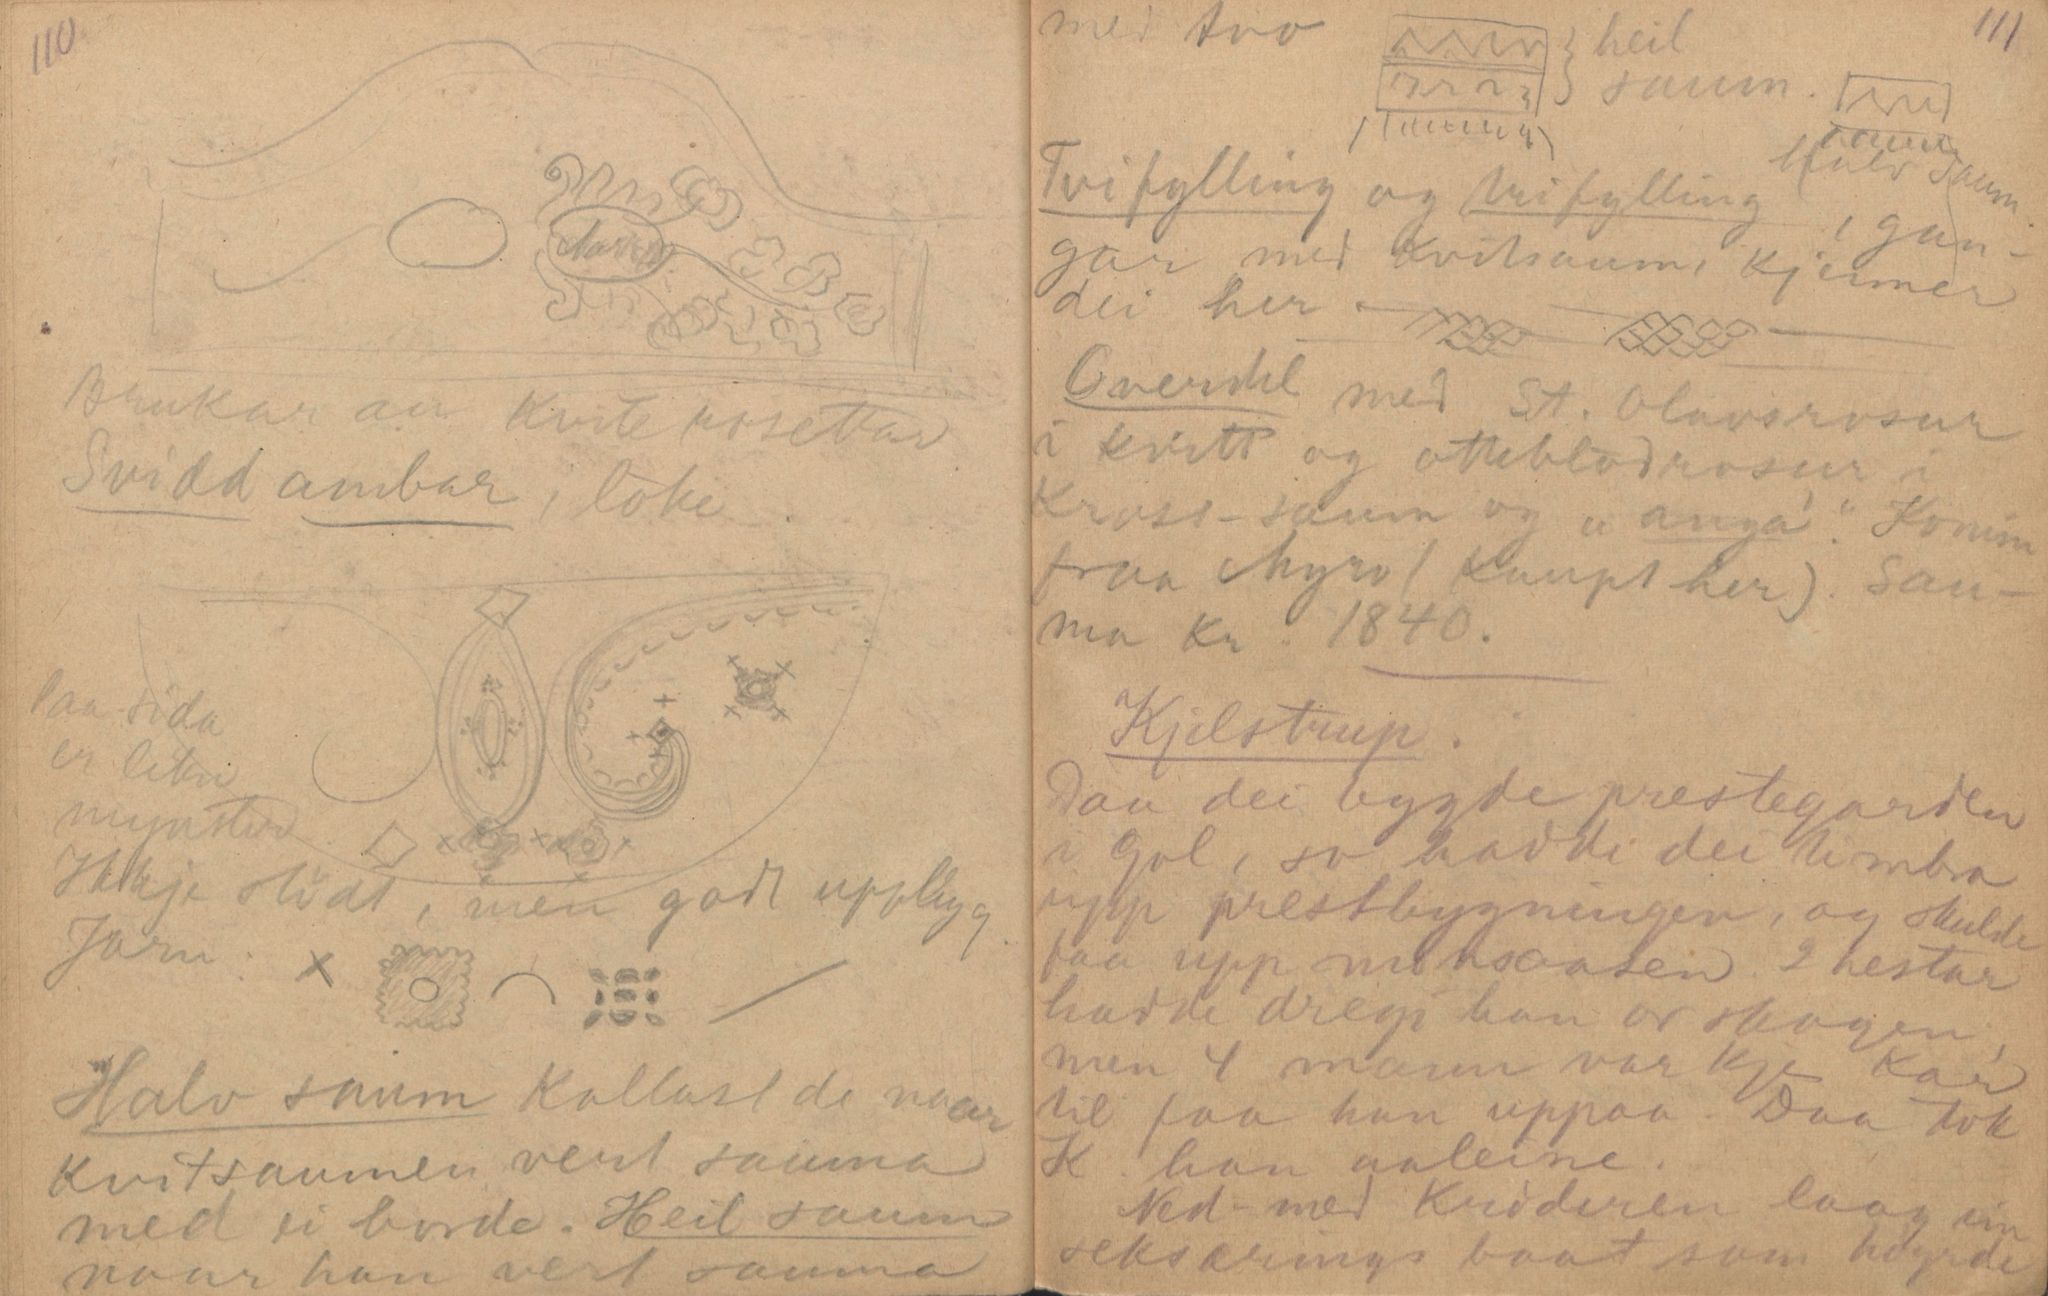 110
Brukar au kvite rosettar
Svidd ambar, loke.
paa sida
er liten
mynster
Ikkje slidt, men godt uppbygg.
Jarn:
Halv saum kallast de naar
kvitsaumen vert sauma
med ei borde. Heil saum
naar han vert sauma
111
med tvo
heil
saum.
Halv saum.
Tvifylling og trifylling, gan-
gar med kvitsaum, kjemer
dei her
Overdel med St. Olavsrosur
i kvitt og ottebladrosur i
Kross-saum og "angá". Komin
fraa Myro (kaupt her). Sau-
ma kr. 1840.
Kjelstrup.
Daa dei bygde prestegarden
i Gol, so hadde dei timbra
upp prestbygningen, og skulde
faa upp mønsaasen. 2 hestar
hadde dregi han or skogen,
men 4 mann var kje kar
til faa han uppaa. Daa tok
K. han aaleine.
Ned-med Krøderen laag ein
seksærings baat som høyrde